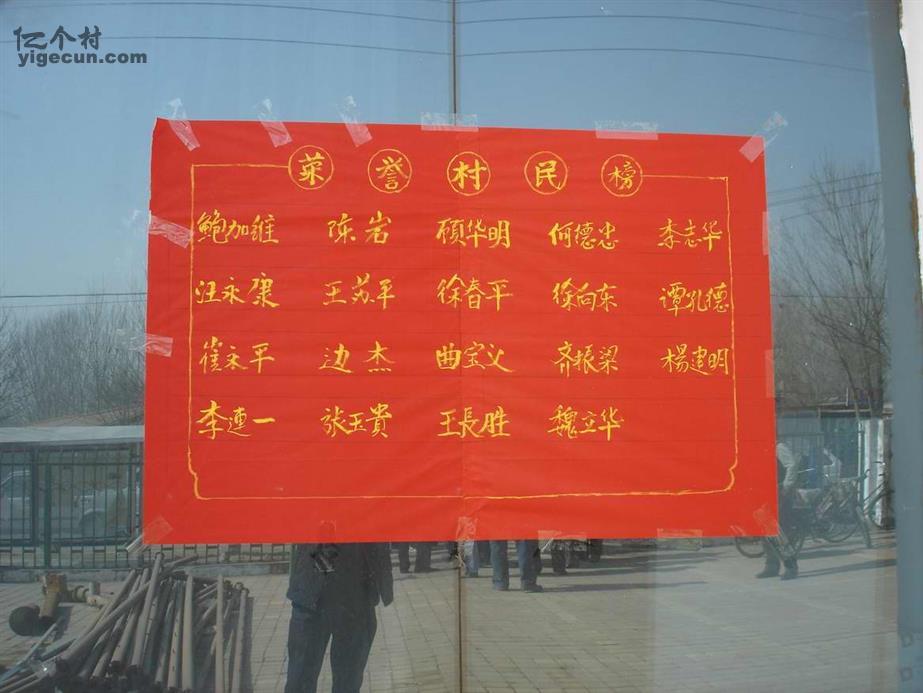 亿个村
yigecun.com
荣誉村民榜
鲍加维 陈岩 顾华明 何德忠 李志华
汪永康 王苏平 徐春平 徐向东 谭孔德
崔永平 边杰 曲宝义 齐振梁 楊建明
李連一 张玉貴 王長胜 魏立华